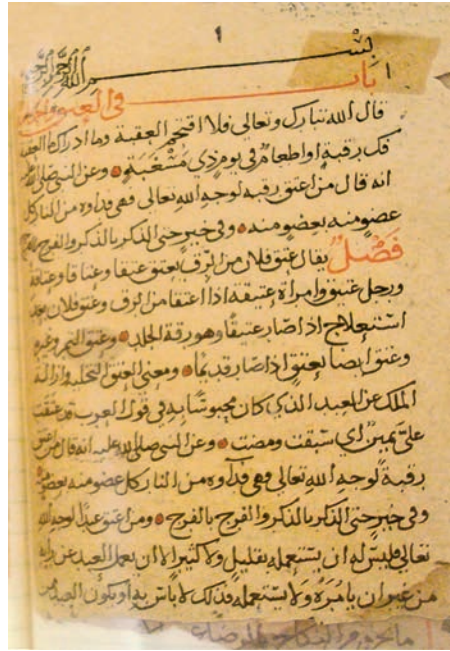 ١
بسم الله الرحمن الرحيم
باب في العتق
قال الله تبارك وتعالى فلا اقتحم العقبة وما ادراك ما العقبة
فك رقبة او اطعام في يوم ذي مسغبة وعن النبي صلى الله
انه قال من اعتق رقبه لوجه الله تعالى فهي فداوه من النار كل
عضو منه بعضو منه وفي خبر حتى الذكر بالذكر والفرج بالفرج
فصل يقال عتق فلان من الرق يعتق عتقا وعتاقا وعتاقة
ورجل عتيق وامراة عتيقه اذا اعتقا من الرق وعتق فلان بعد
استعلاج اذا صار عتيقا وهو رقة الجلد وعتق التمر وغيره
وعتق ايضا يعتق اذا صار قديما ومعنى العتق التخليه وازالة
الملك عن العبد الذي كان محبوسا به في قول العرب قد عتقت
على يمين اي سبقت ومضت وعن النبي صلى الله عليه انه قال من اعتق
رقبة لوجه الله تعالى فهي فداوه من النار كل عضو منه بعضو
وفي خبر حتى الذكر بالذكر والفرج بالفرج ومن اعتق عبدا لوجه الله
تعالى فليس له ان يستعمله بقليل ولا كثير الا ان يعمل العبد عن رايه
من غير ان يامره ولا يستعمله فذلك لا باس به او يكون العبد